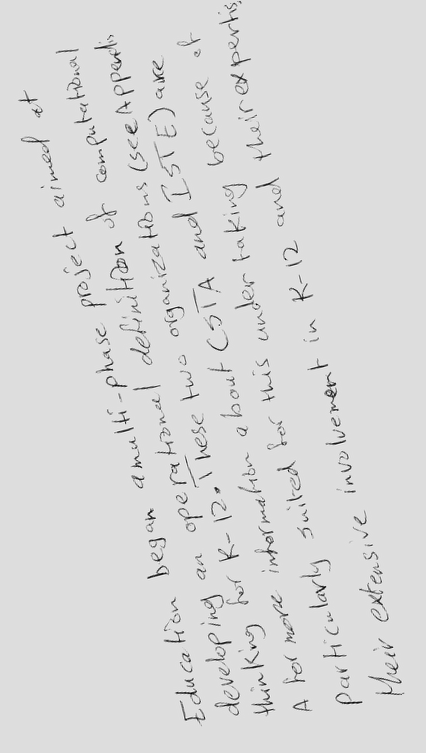 Education began amulti-phase project aimed at
developing an operational definition of computational
thinking for K-12. These two organizations (see Appendix
A for more information about CSTA and ISTE) are
particularly suited for this under taking because of
their extensive involvement in K-12 and their expertis